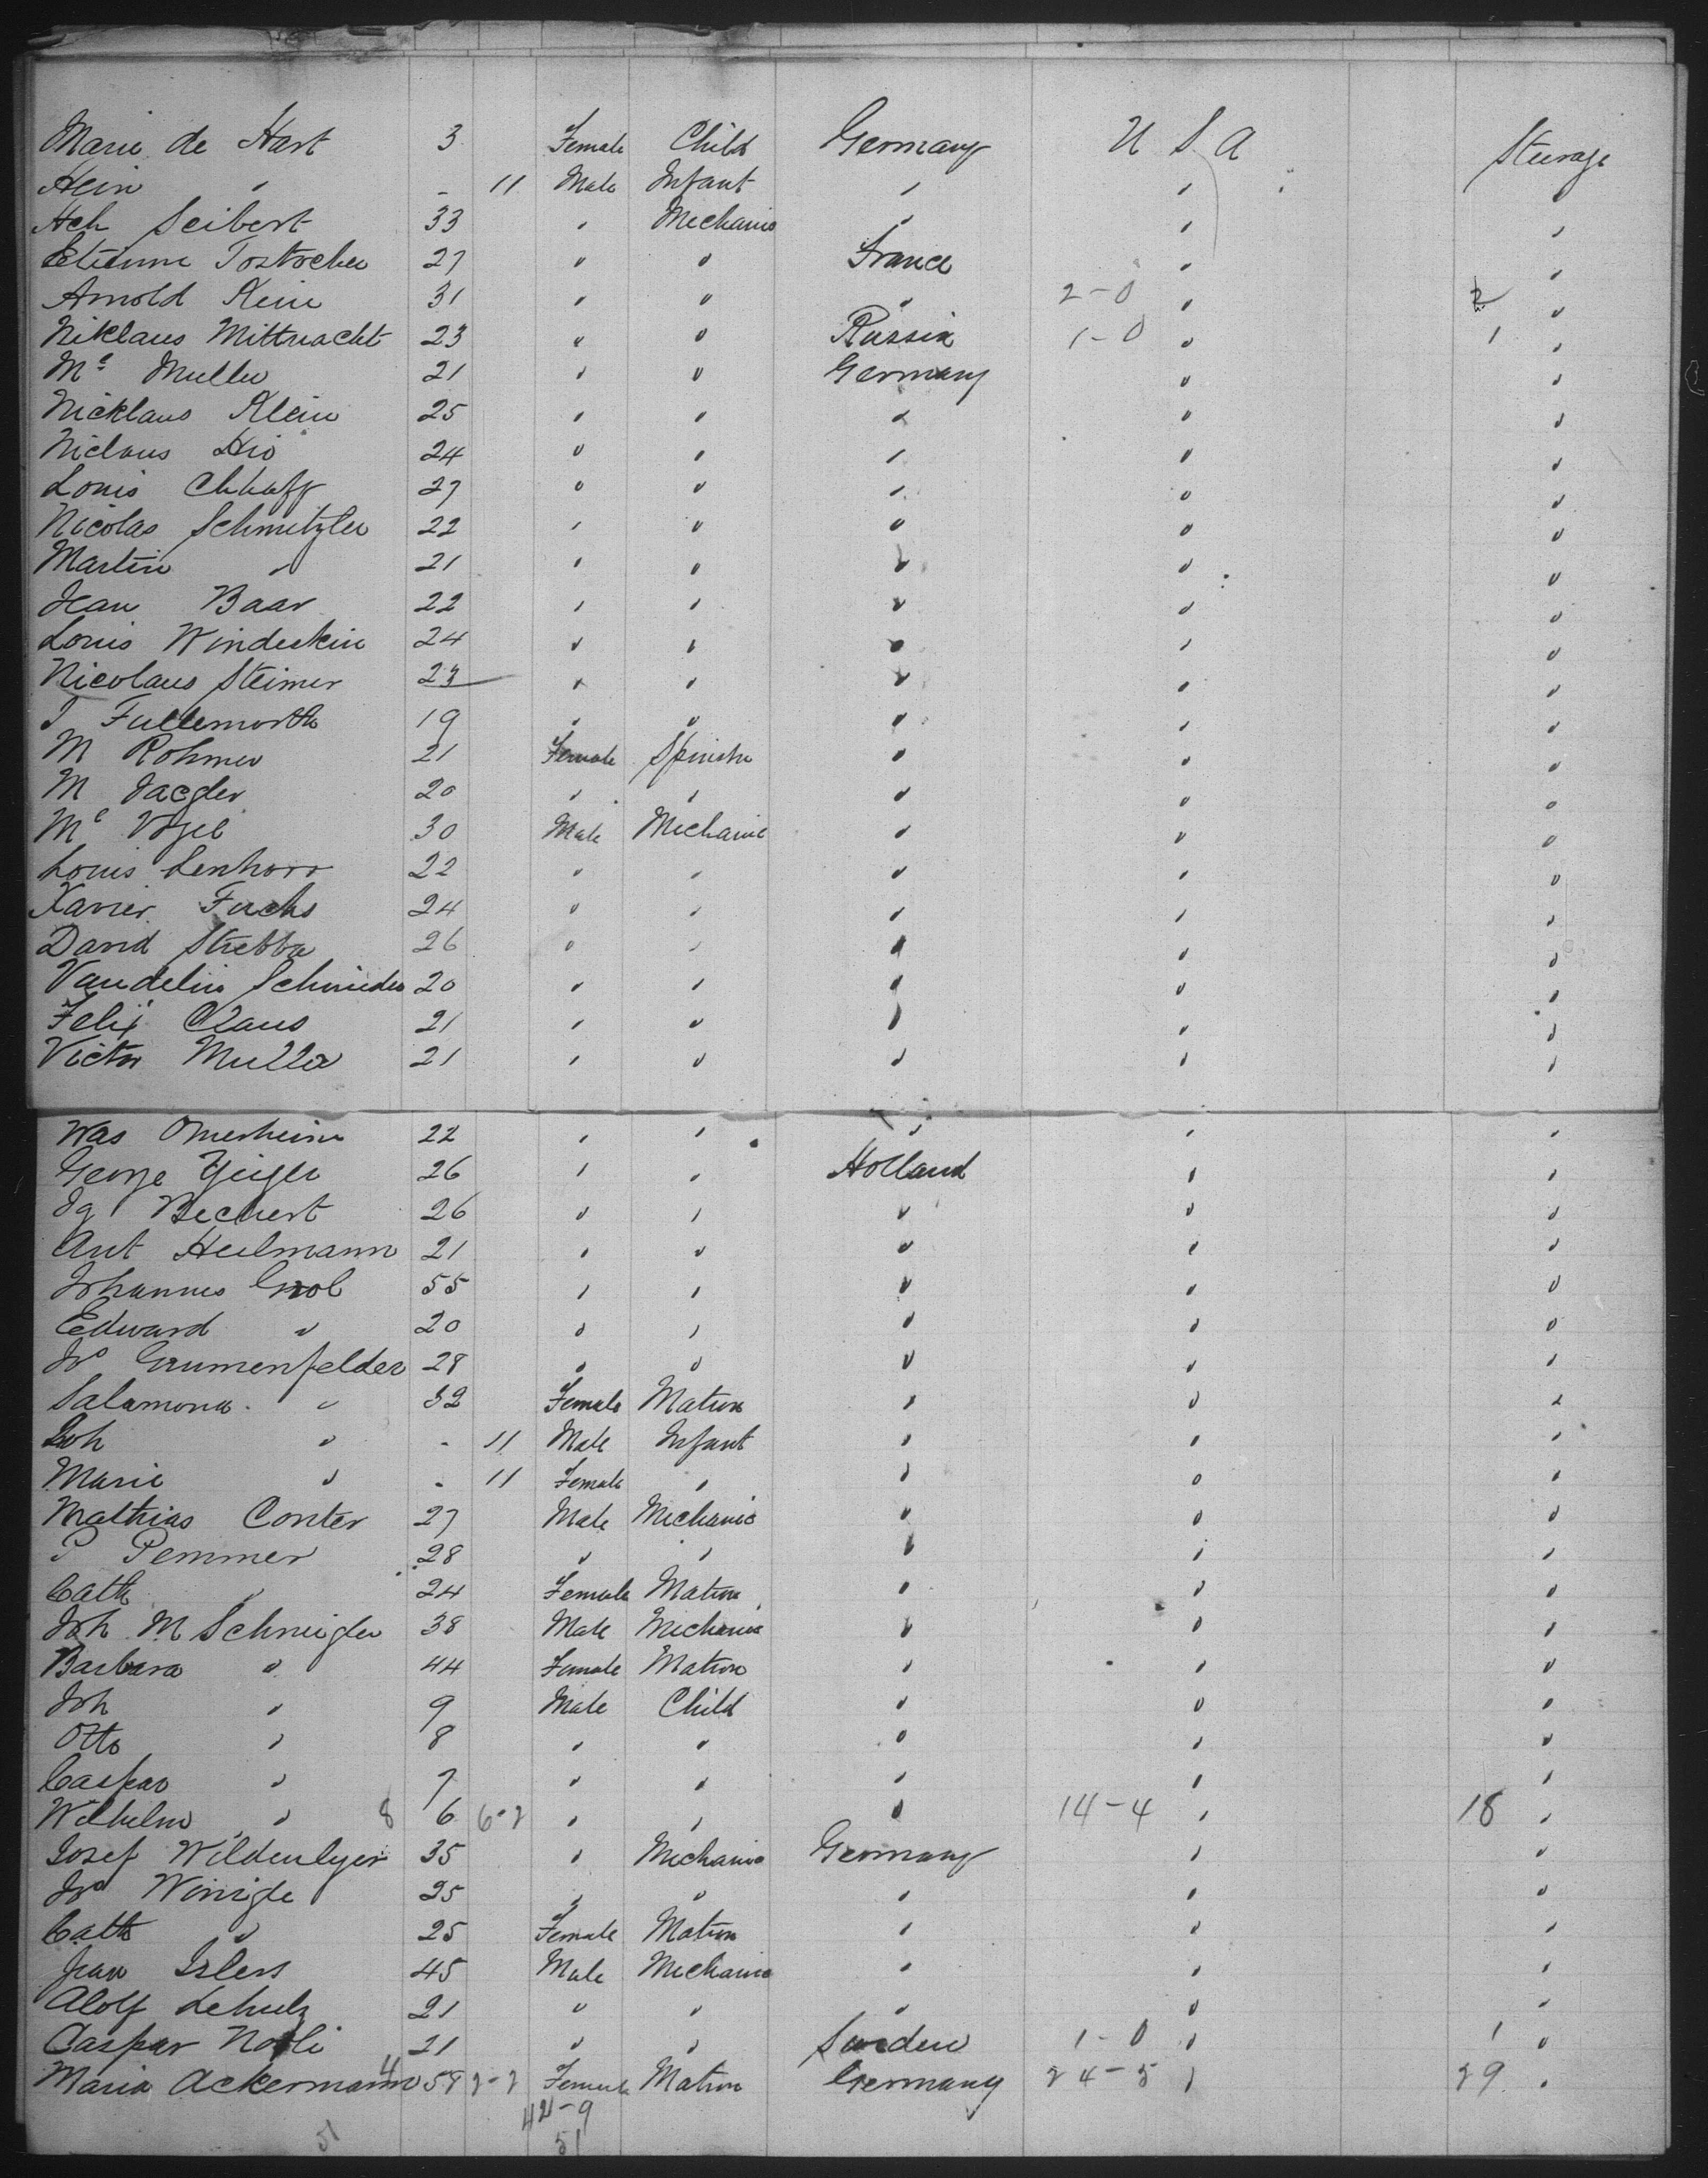 Marie de Hart 3 Female Child Germany U S A Steerage
Hein " - 11 Male Infant " " "
Hch Seibert 33 " Mechanic " " "
Etienne Tostocher 27 " " France " "
Arnold Rein 31 " " " 2-0 " 2 "
Niklaus Mittnacht 23 " " Russia 1-0 " 1 "
Mc Muller 21 " " Germany " "
Nicklaus Klein 25 " " " " "
Niclaus Hio 24 " " " " "
Louis 27 " " " " "
Nicolas Schmitzler 22 " " " " "
Martin " 21 " " " " "
Jean Baar 22 " " " " "
Louis Windeskin 24 " " " " "
Nicolaus Steimer 23 " " " " "
J Fullemorth 19 " " " " "
M Rohmer 21 Female Spinster " " "
M Jaegler 20 " " " " "
Mc Vogel 30 Male Mechanic " " "
Louis Lenhorr 22 " " " " "
Xavier Fuchs 24 " " " " "
David Strebba 26 " " " " "
Vandelin Schnieder 20 " " " " "
Felix Claus 21 " " " " "
Victor Muller 21 " " " " "
Was Omerheim 22 " " " " "
George Geiger 26 " " Holland " "
Ig Bechert 26 " " " " "
Ant Heilmann 21 " " " " "
Johannes Grob 55 " " " " "
Edward " 20 " " " " "
Jos Grumenfelder 28 " " " " "
Salamona " 32 Female Matron " " "
Joh " - 11 Male Infant " " "
Marie " - 11 Female " " " "
Mathias Conter 27 Male Mechanic " " "
P Pemmer 28 " " " " "
Cath " 24 Female Matron " " "
Joh M Schneigler 38 Male Mechanic " " "
Barbara " 44 Female Matron " " "
Joh " 9 Male Child " " "
Otto " 8 " " " " "
Caspar " 7 " " " " "
Wilhelm " 8 6 6-2 " " " 14-4 " 18 "
Josef Wildenlyer 35 " Mechanic Germany " "
Jos Winigle 25 " " " " "
Cath " 25 Female Matron " " "
Jean Islers 45 Male Mechanic " " "
Alolf Lehulz 21 " " " " "
Caspar Nobli 21 " " Sweden 1-0 " 1 "
Maria Ackermann 4 58 2-2 Female Matron Germany 24-5 " 29 "
42-9
51 51